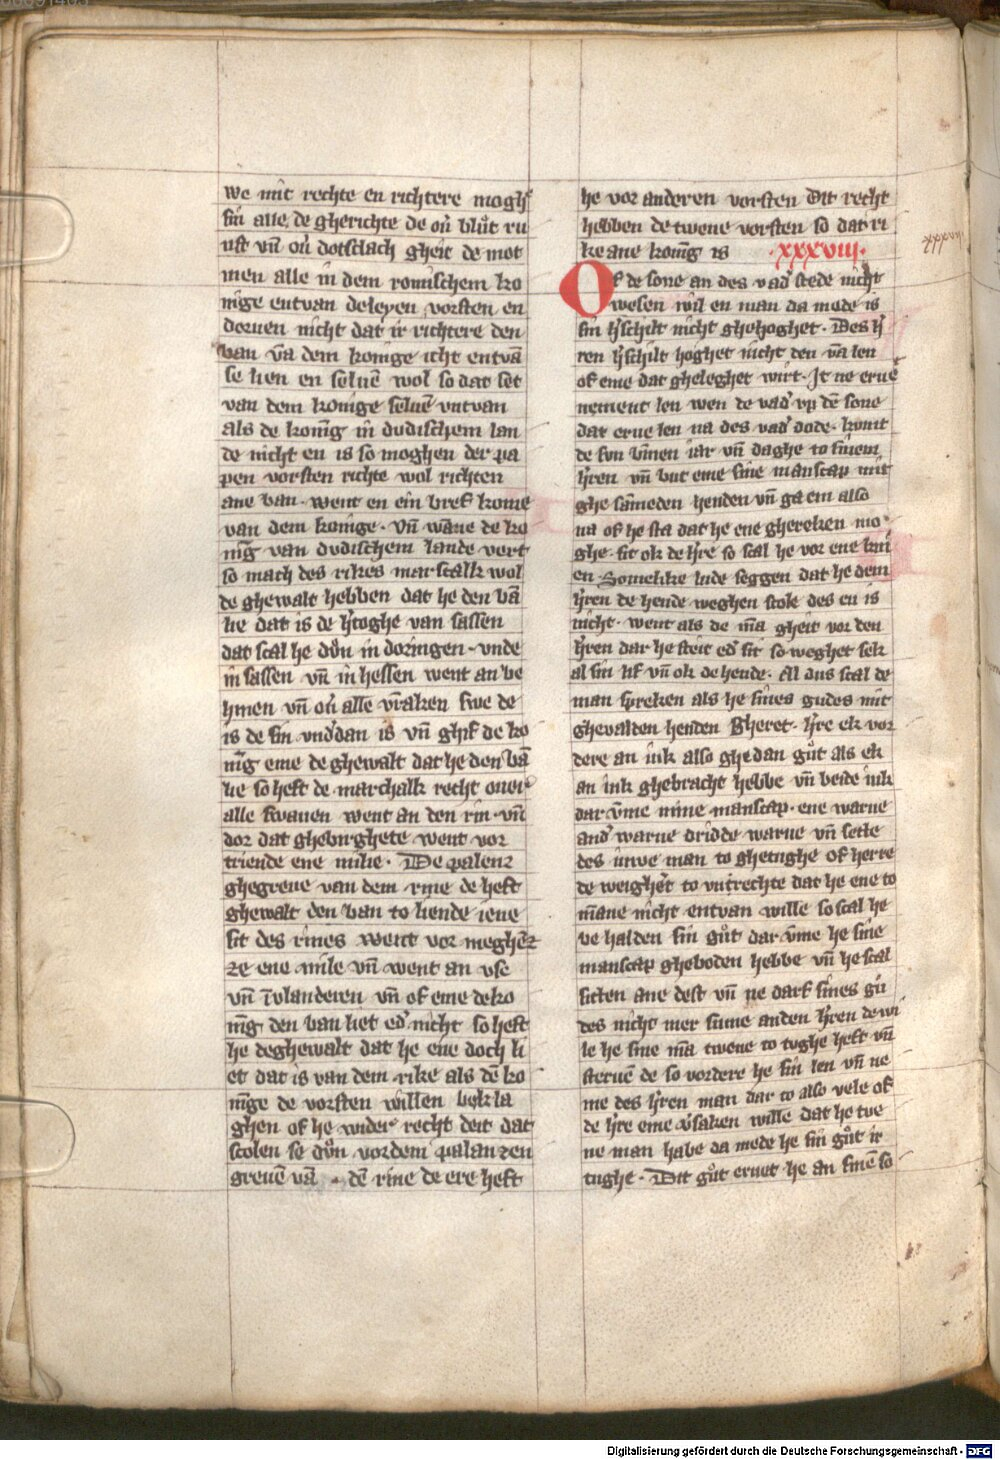 we mit rechte en richtere mogh͛
sin alle de gherichte de ou͛ blůt ru
nst vn̄ ou͛ dotslach gheit de mot
men alle in dem romischem ko
nige entvan de leyen vorsten en
doruen nicht dat ir richtere den
ban va̅ dem konige icht entva̅
se lien en selue̅ wol so dat set
van dem konige selue̅ vntvan
als de konig̅ in dudischem lan
de nicht en is so moghen der pa
pen vorsten richte wol richten
ane ban · went en ein bref kome
van dem konige · vn̄ wa̅ne de ko
nig̅ van dudischem lande vert
so mach des rikes marscalk wol
de ghewalt hebben dat he den ba̅
lie dat is de h͛toghe van sassen
dat scal he důn in doringen · vnde
in sassen vn̄ in hessen went an be
hmen vn̄ ou͛ alle vra̅ken swe de
is de sin vnd͛dan is vn̄ ghift de ko
nig̅ eme de ghewalt dat he den ba̅
lie so heft de marchalk recht ouer͛
alle swauen went an den rin · vn̄
dor dat gheburghete went vor
triende ene milie · De palenz
ghegreue van dem rine de heft
ghewalt den ban to liende iene
sit des rines went vor meghe̅t
ze ene mile vn̄ went an vse
vn̄ i̅ vlanderen vn̄ of eme de ko
nig̅ den ban liet ed͛ nicht so heft
he deghewalt dat he ene doch li
et dat is van dem rike als de̅ ko
nig̅e de vorsten willen bekla
ghen of he wider͛ recht deit dat
scolen se důn vordem palanzen
greue̅ va̅ · de̅ rine de ere heft
he vor anderen vorsten Dit recht
hebben de twene vorsten so dat ri
ke ane konig̅ is · xxxviii ·
Of de sone an des vad͛ stede nicht
wesen wil en man da mede is
sin h͛schilt nicht ghehoghet · Des h͛
ren h͛schilt hoghet nicht den va̅ len
of eme dat gheleghet wirt · It ne erue̅
nement len wen de vad͛ vp de̅ sone
dat erue len na des vad͛ dode · kumt
de son bi̅nen iar vn̄ daghe to sinem
h͛ren vn̄ but eme sine manscap mit
ghe sa̅meden henden vn̄ ga em also
na of he sta dat he ene ghereken mo
ghe · sit ok de h͛re so scal he vor ene kni
en · Somelike lude seggen dat he dem
h͛ren de hende weghen scole des en is
nicht · went als de ma̅ gheit vor den
h͛ren dar he steit ed͛ sit so weghet sek
al sin lif vn̄ ok de hende · Al dus scal de
man spreken als he sines gudes mit
ghevalden henden Gheret · h͛re ek vor
dere an iuk also ghedan gůt als ek
an iuk ghebracht hebbe vn̄ beide iuk
dar v̅me mine manscap · ene warue
and͛ warue dridde warue vn̄ sette
des iuwe man to ghetughe of herre
de weigh͛et to vntrechte dat he ene to
ma̅ne nicht entvan wille so scal he
be halden sin gůt dar v̅me he sine
manscap gheboden hebbe vn̄ he scal
sitten ane dest vn̄ ne darf sines gu
des nicht mer sinne anden h͛ren de wi
le he sine ma̅ twene to tughe heft vn̄
sterue̅ de so vordere he sin len vn̄ ne
me des h͛ren man dar to also vele of
de h͛re eme v͛saken wille dat he twe
ne man habe da mede he sin gůt ir
tughe · Dit gůt eruet he an sine̅ so
Digitalisierung gefördert durch die Deutsche Forschungsgemeinschaft - DFG